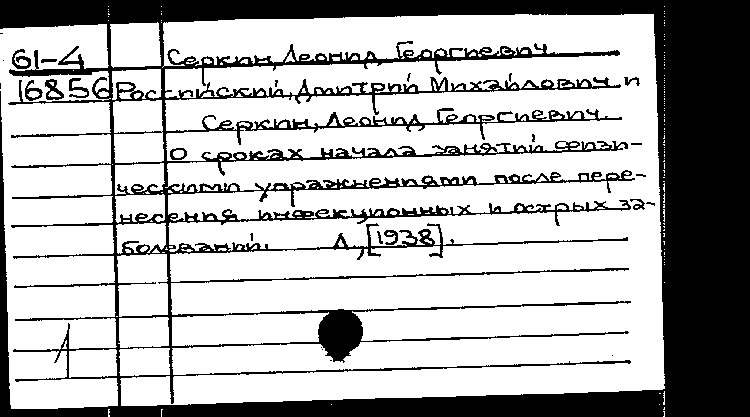 61-4 Серкин, Леонид Георгиевич.
16856 Российский, Дмитрий Михайлович и
Серкин, Леонид Георгиевич.
О сроках начала занятий физи-
ческими упражнениями после пере-
несения инфекционных и острых за-
болеваний. Л., [1938].
1